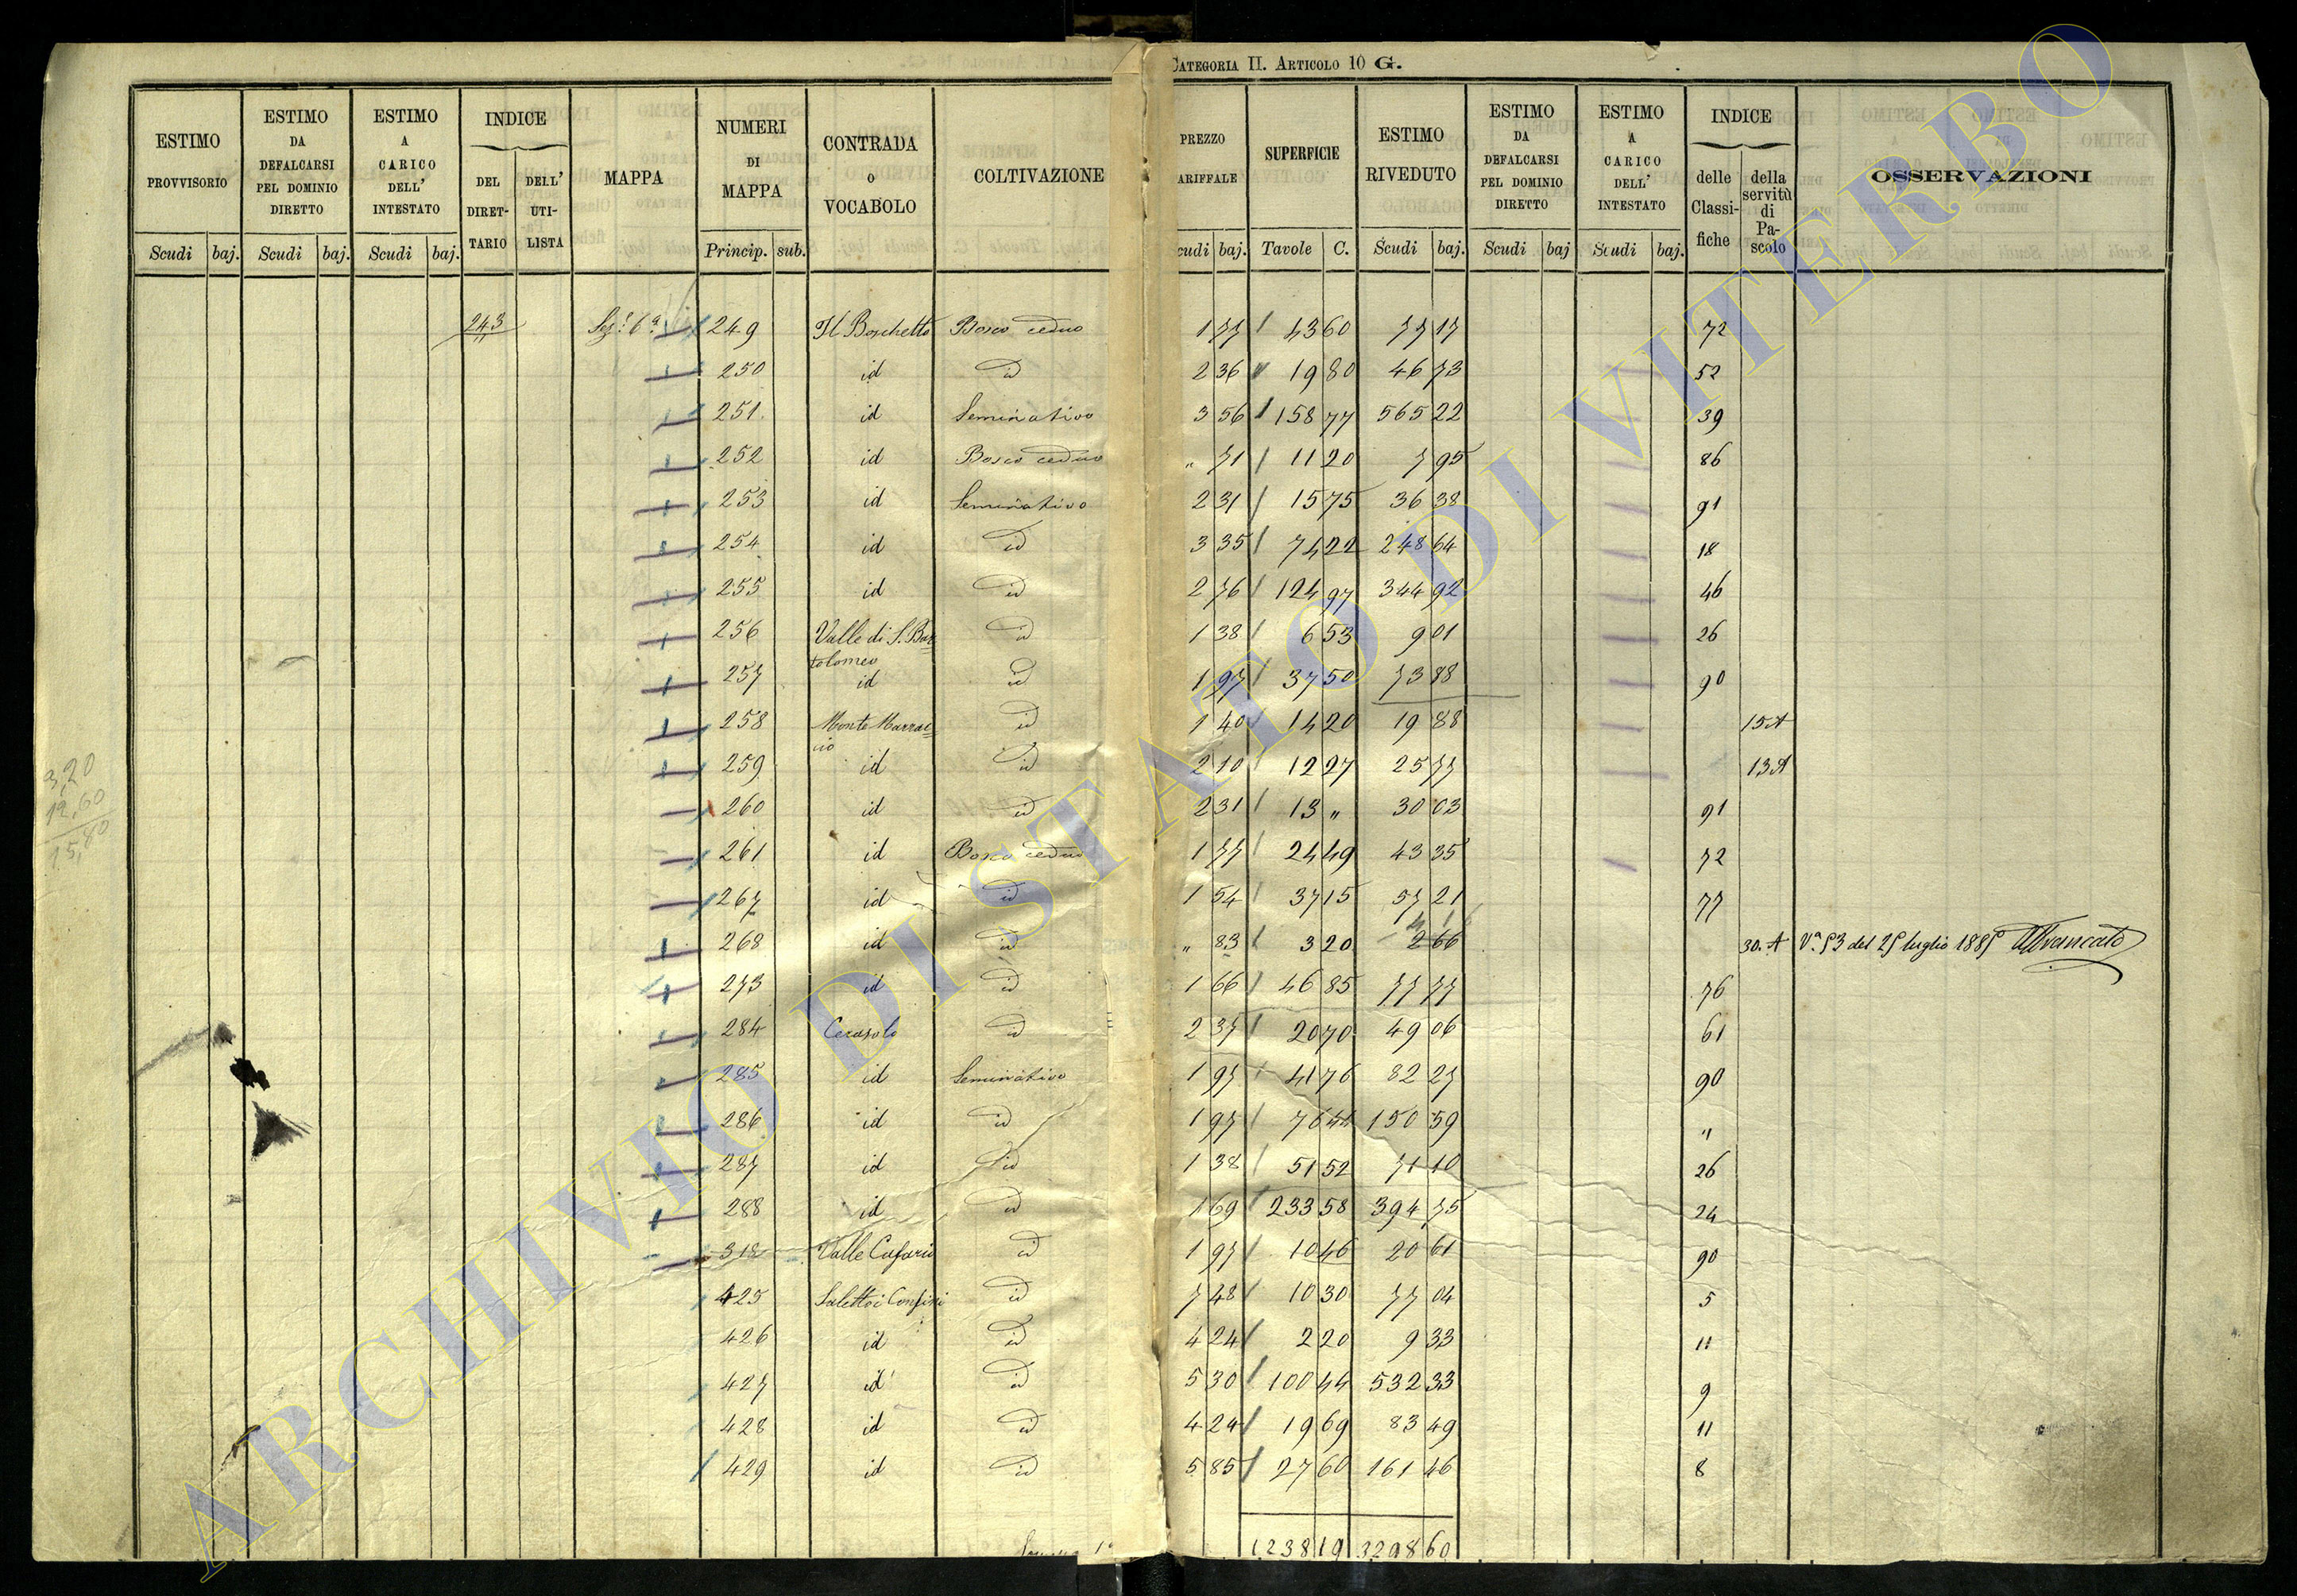 CATEGORIA II. ARTICOLO 10 G.
ESTIMO PROVVISORIO
ESTIMO DA DEFALCARSI PEL DOMINIO DIRETTO
ESTIMO A CARICO DELL' INTESTATO
INDICE
DEL DIRET-TARIO
DELL' UTI-LISTA
MAPPA
NUMERI DI MAPPA
CONTRADA O VOCABOLO
COLTIVAZIONE
PREZZO ARIFFALE
SUPERFICIE
ESTIMO RIVEDUTO
ESTIMO DA DEFALCARSI PEL DOMINIO DIRETTO
ESTIMO A CARICO DELL' INTESTATO
INDICE
delle Classi-fiche
della servitù di Pa-scolo
OSSERVAZIONI
Scudi baj. Scudi baj. Scudi baj. Princip. sub. cudi baj. Tavole C. Scudi baj. Scudi baj Scudi baj.
243 Sez. 6a 249 Il Boschetto Bosco ceduo 1 77 43 60 77 17 72
250 id id 2 36 19 80 46 73 52
251 id Seminativo 3 56 158 77 565 22 39
252 id Bosco ceduo " 71 11 20 7 95 86
253 id Seminativo 2 31 15 75 36 38 91
254 id id 3 35 74 22 248 64 18
255 id id 2 76 124 97 344 92 46
256 Valle di S. Bar=tolomeo id 1 38 6 53 9 01 26
257 id id 1 97 37 50 73 88 90
258 Monte Marrac=cio id 1 40 14 20 19 88 15 A
259 id id 2 10 12 27 25 77 13 A
260 id id 2 31 13 " 30 03 91
261 id Bosco ceduo 1 77 24 49 43 35 72
267 id id 1 54 37 15 57 21 77
268 id id " 83 3 20 2 66 30. A Va 53 del 25 luglio 1885
273 id id 1 66 46 85 77 77 76
284 Cerasolo id 2 37 20 70 49 06 61
285 id Seminativo 1 97 41 76 82 27 90
286 id id 1 97 76 44 150 59 "
287 id id 1 38 51 52 71 10 26
288 id id 1 69 233 58 394 75 24
318 Valle Cafari id 1 97 10 46 20 61 90
425 Saletto i Confini id 7 48 10 30 77 04 5
426 id id 4 24 2 20 9 33 11
427 id id 5 30 100 44 532 33 9
428 id id 4 24 19 69 83 49 11
429 id id 5 85 27 60 161 46 8
1238 19 3298 60
3,20
12,60
15,80
ARCHIVIO DI STATO DI VITERBO